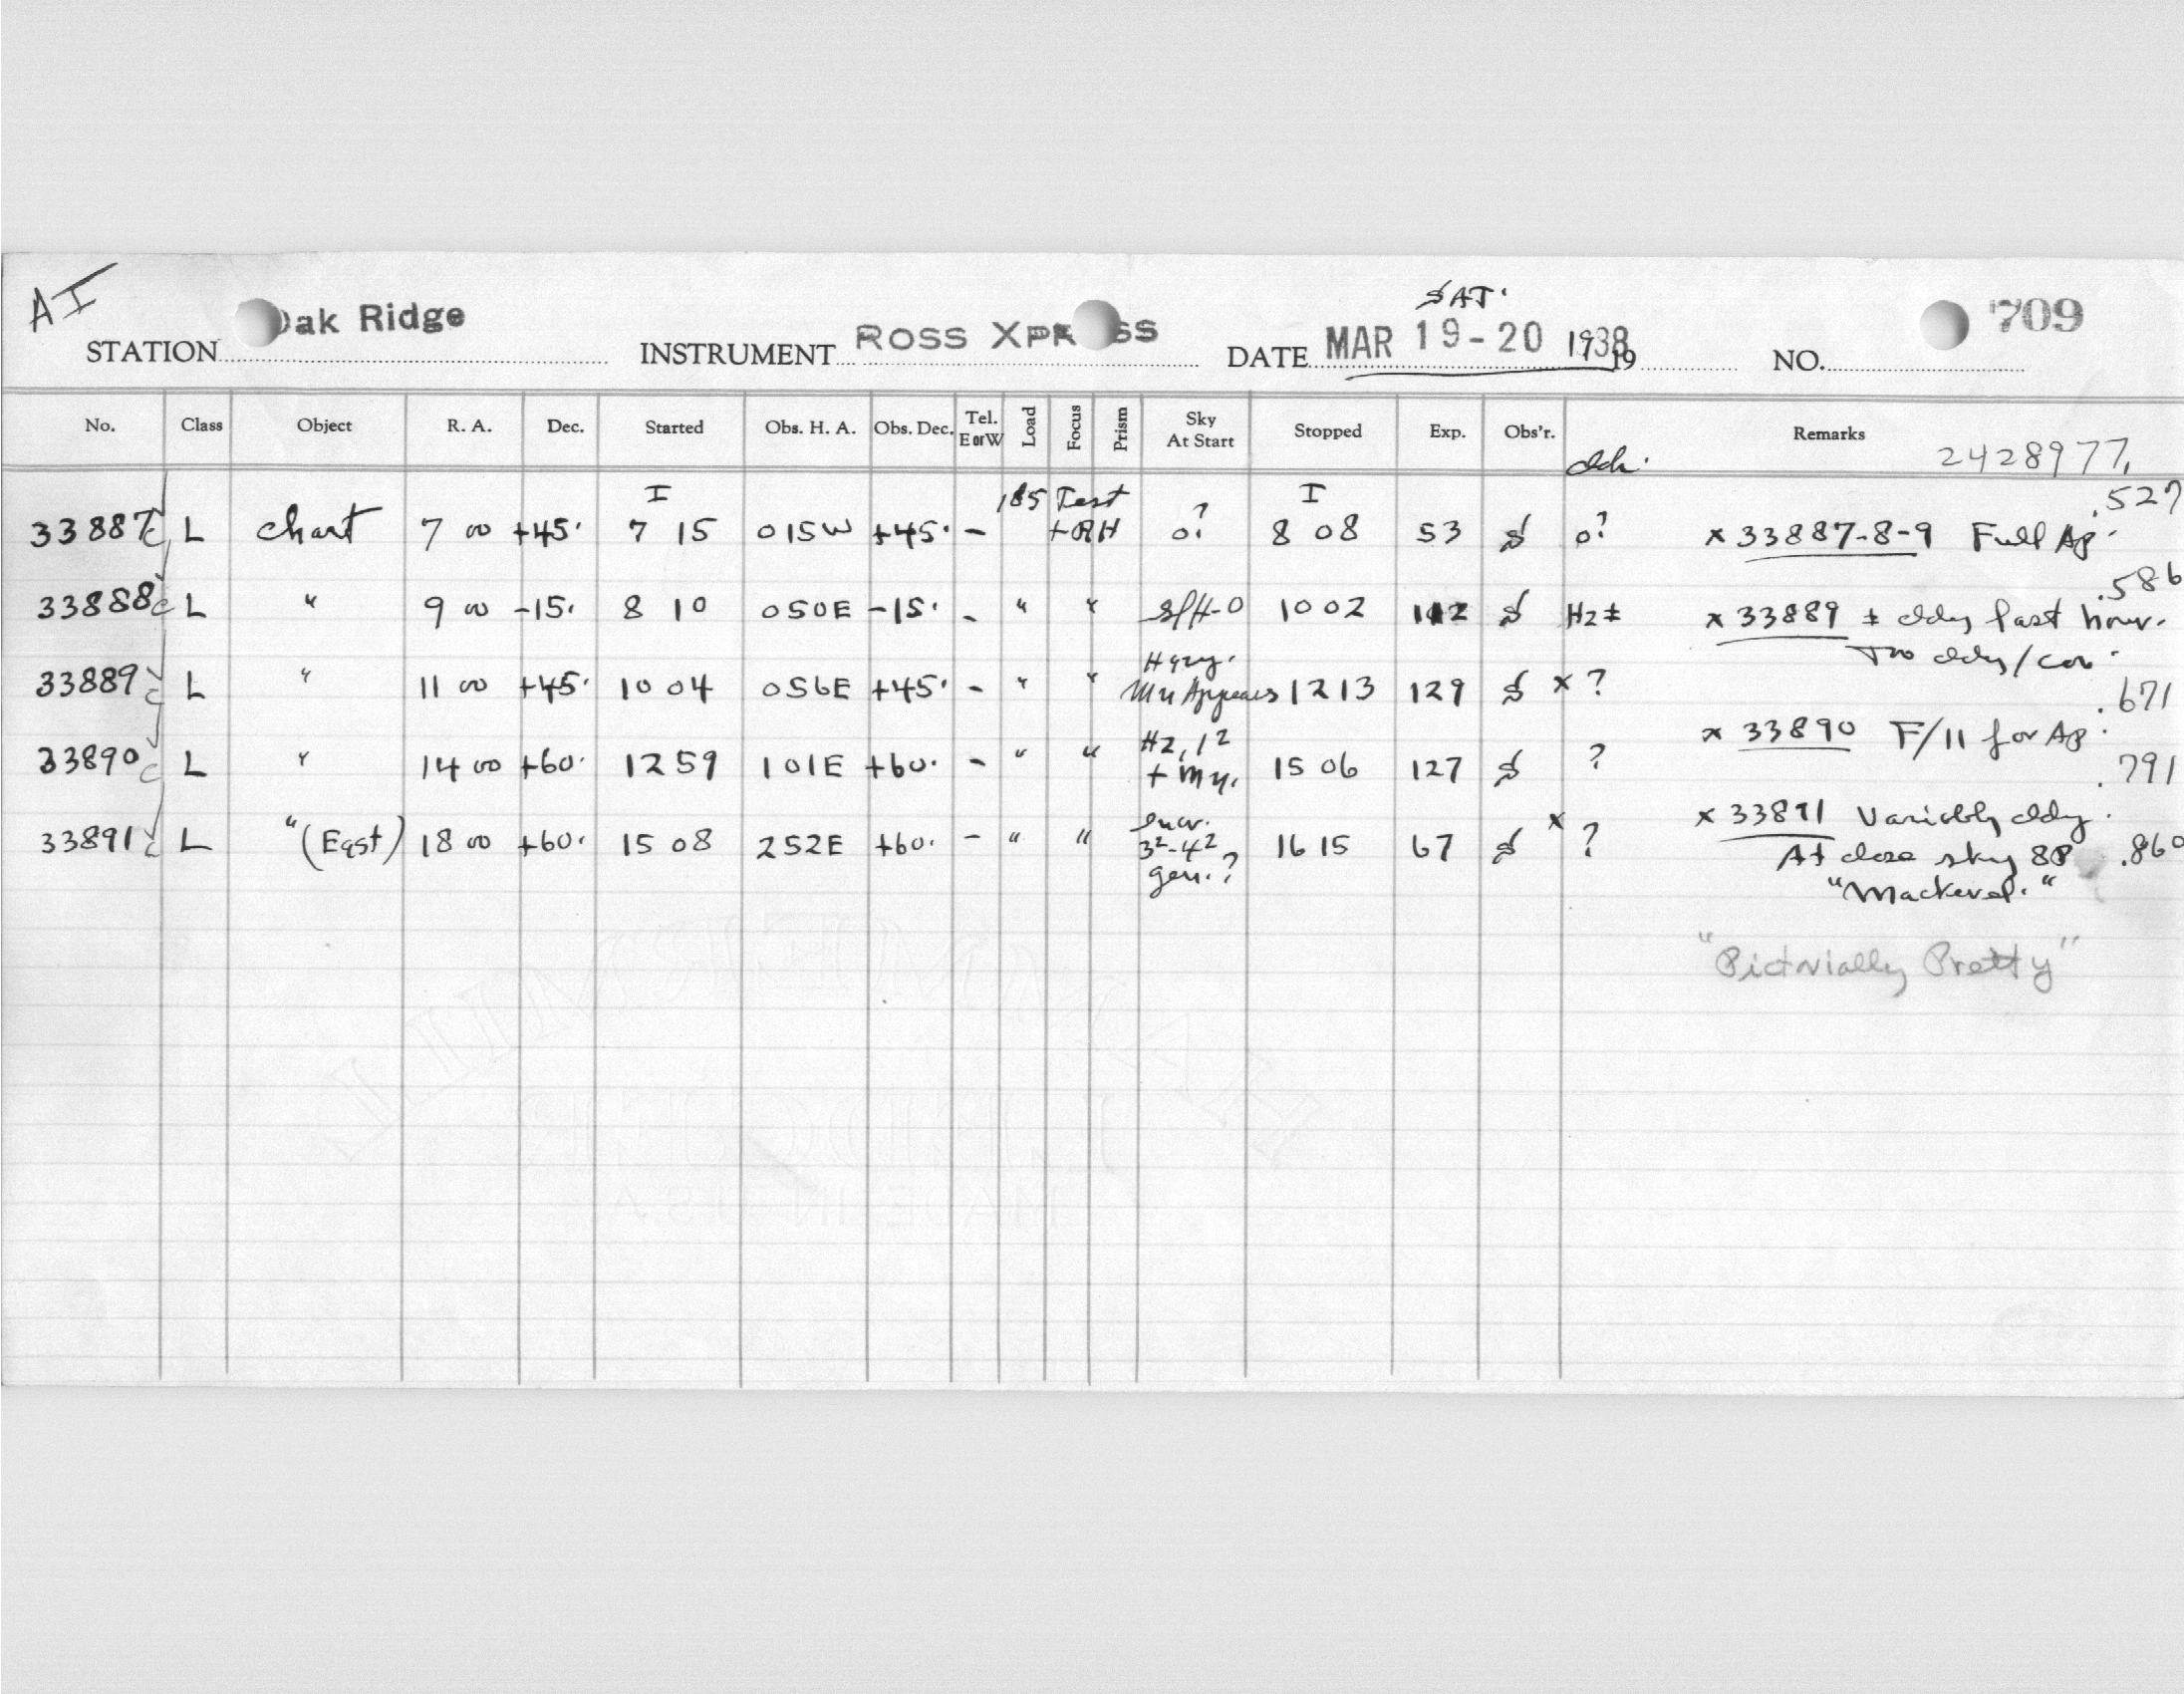 AI
SAT.
STATION Oak Ridge INSTRUMENT ROSS XPRESS DATE MAR 19-20 1938 19 NO. 709
No. Class Object R. A. Dec. Started Obs. H. A. Obs. Dec. Tel. E or W Load Focus Prism Sky At Start Stopped Exp. Obs'r. Remarks
2428977.
I 185 Test I .527
33887 L Chart 7 00 +45. 7 15 015W +45. - +RH 0? 8 08 53 0? x 33887-8-9 Full Ap.
.586
33888 L " 9 00 -15. 8 10 050E -15. - " " 10 02 112 Hz± x 33889 ± cldy last hour.
Hazy.
33889 L " 11 00 +45. 10 04 056E +45. - " " Mn Appears 12 13 129 x ? .671
x 33890 F/11 for Ap.
33890 L " 14 00 +60. 12 59 101E +60. - " " Hz, 1² + Mn. 15 06 127 ? .791
x 33891 Variably cldy.
33891 L " (East) 18 00 +60. 15 08 252E +60. - " " 3²-4² gen.? 16 15 67 x ? At close sky 8P .860
"Mackerel."
"Pictorially Pretty"